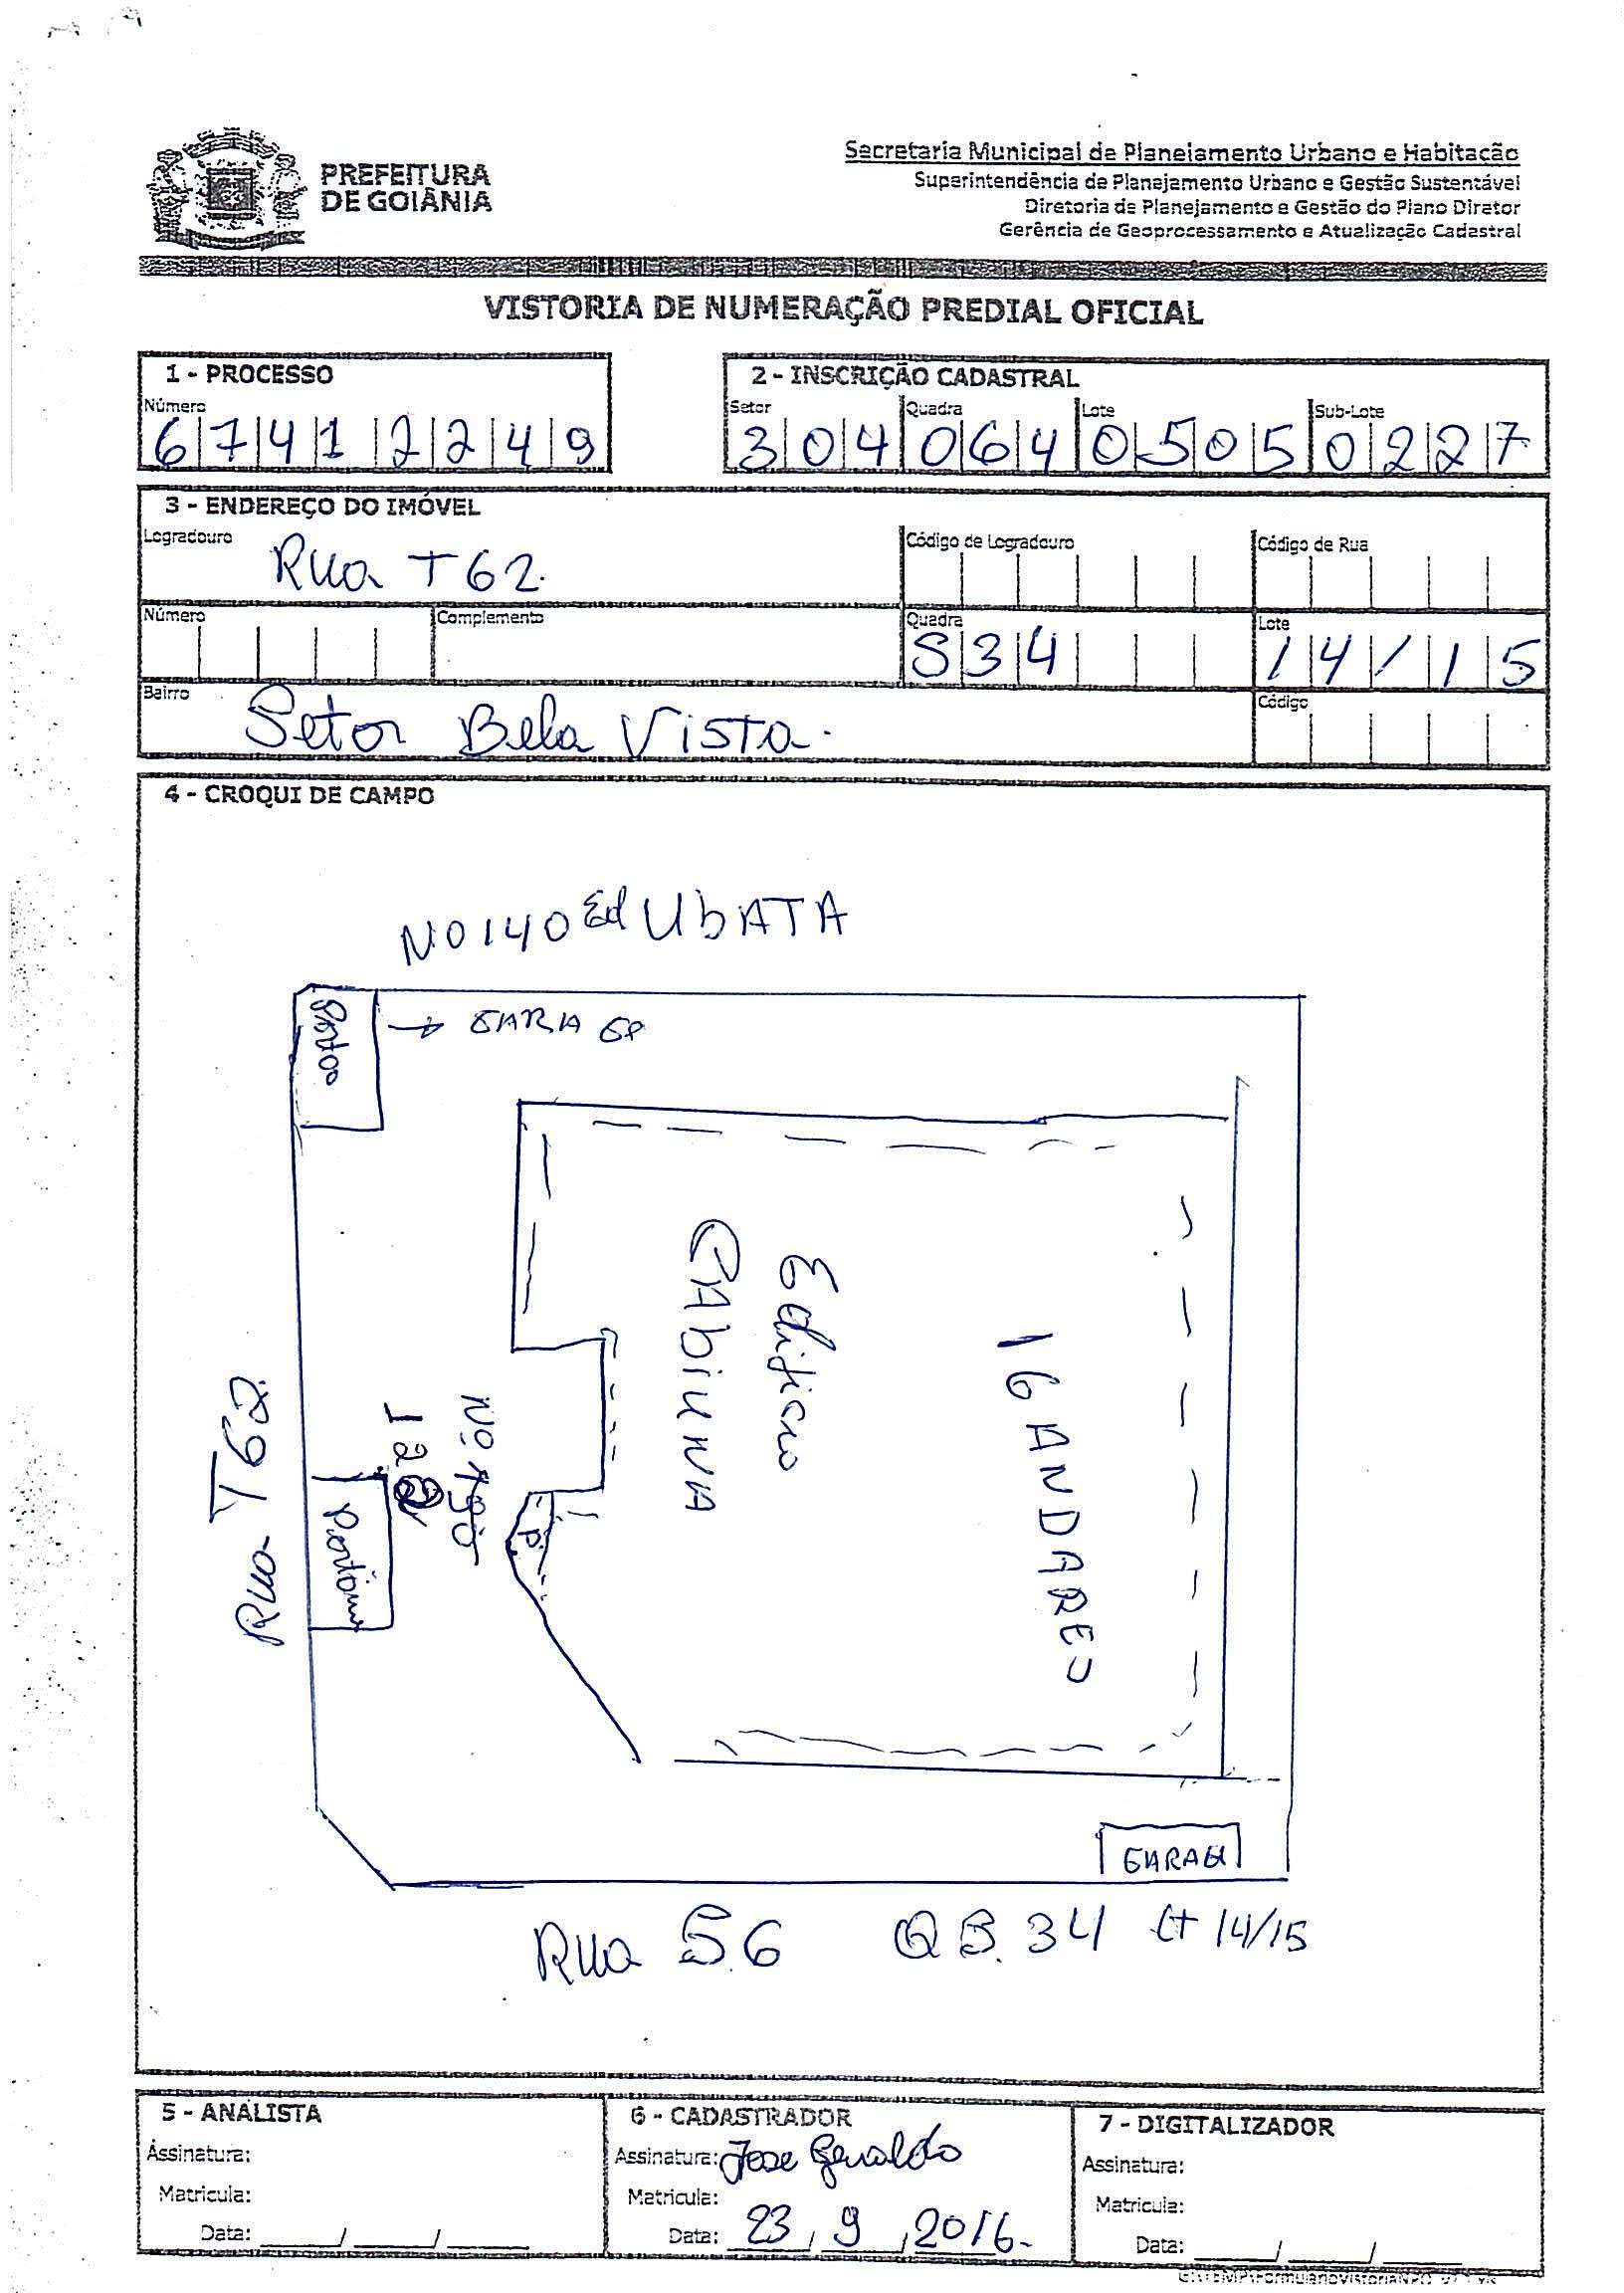 PREFEITURA
DE GOIÂNIA
Secretaria Municipal de Planejamento Urbano e Habitação
Superintendência de Planejamento Urbano e Gestão Sustentável
Diretoria de Planejamento e Gestão do Plano Diretor
Gerência de Geoprocessamento e Atualização Cadastral
VISTORIA DE NUMERAÇÃO PREDIAL OFICIAL
1 - PROCESSO
Número
6 7 4 1 2 2 4 9
2 - INSCRIÇÃO CADASTRAL
Setor Quadra Lote Sub-Lote
3 0 4 0 6 4 0 5 0 5 0 2 2 7
3 - ENDEREÇO DO IMÓVEL
Logradouro Código de Logradouro Código de Rua
Rua T62.
Número Complemento Quadra Lote
S34 14/15
Bairro Código
Setor Bela Vista.
4 - CROQUI DE CAMPO
N.0140 Ed UbATA
Portão
Edificio
CAbiuNA
16 ANDARES
Nº
Rua T62
Portão
P.
GARAG
Rua S.6 Q S. 34 Lt 14/15
5 - ANALISTA
Assinatura:
Matricula:
Data: ____/____/____
6 - CADASTRADOR
Assinatura: Jose Geraldo
Matricula:
Data: 23/9/2016.
7 - DIGITALIZADOR
Assinatura:
Matricula:
Data: ____/____/____